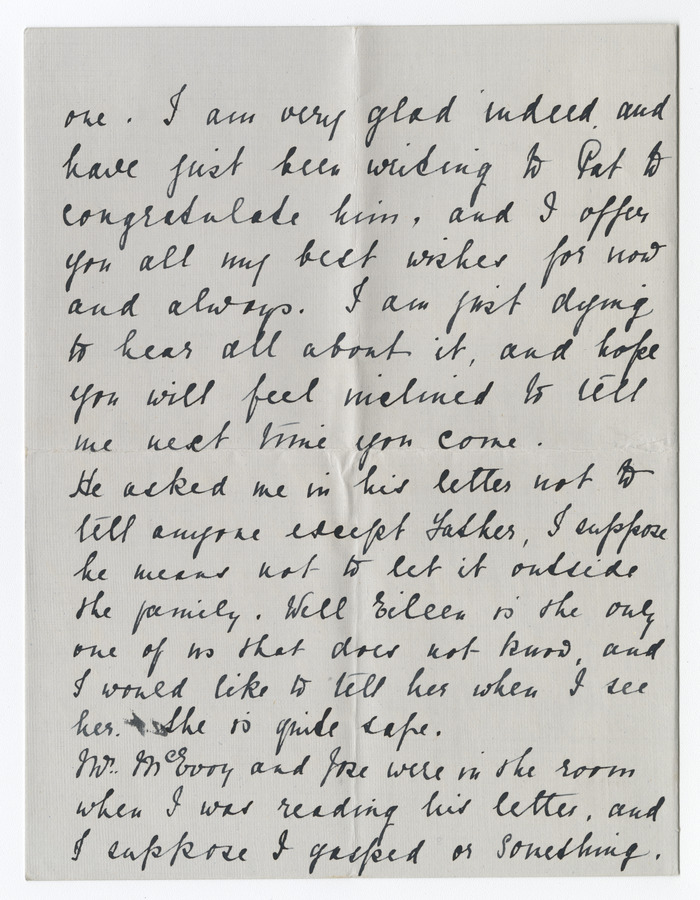 one. I am very glad indeed, and
have just been writing to Pat to
congratulate him, and I offer
you all my best wishes for now
and always. I am just dying
to hear all about it, and hope
you will feel inclined to tell
me next time you come.
He asked me in his letter not to
tell anyone except Father, I suppose
he means not to let it outside
the family. Well Eileen is the only
one of us that does not know, and
I would like to tell her when I see
her. She is quite safe.
Mr. McEvoy and Joe were in the room
when I was reading his letter, and
I suppose I gasped or something.